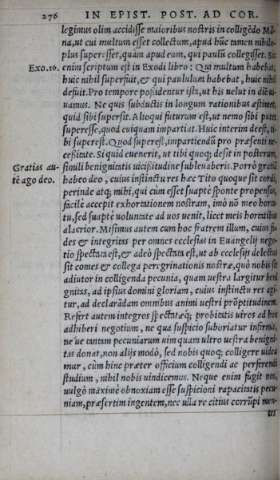 276 IN EPIST. POST. AD COR.
legimus olim accidisse maioribus nostris in colligẽdo Mã-
na, ut cui multum esset collectum, apud hũc tamen nihilo
plus superesset, quàm apud eam, qui paulũ collegisset. Sic
Exo. 16. enim scriptum est in Exodi libro: Qui multum habebat,
huic nihil superfuit, & qui paululum habebat, huic nihil
defuit. Pro tempore possidentur ista, ut his uelut in diẽ ui-
uamus. Ne quis subductis in longum rationibus æstimet,
quid sibi supersit. Alioqui futurum est, ut nemo sibi putet
superesse, quod cuiquam impartiat. Huic interim deest, ti-
bi superest. Quod superest, impartiendũ pro præsenti ne-
cessitate. Si quid euenerit, ut tibi quoq; desit in posterum,
Gratias au- simili benignitatis uicissitudine subleuaberis. Porrò gratiã
tẽ ago deo. habeo deo, cuius instinctu res hæc Tito quoque sit cordi,
perinde atq; mihi, qui cùm esset suapte sponte propensus,
facile accepit exhortationem nostram, imò nõ meo horta-
tu, sed suapte uoluntate ad uos uenit, licet meis hortatibus
alacrior. Misimus autem cum hoc fratrem illum, cuius fi-
des & integritas per omnes ecclesias in Euangelij nego-
tio spectata est, & adeò spectata est, ut ab ecclesijs delectus
sit comes & collega peregrinationis nostræ, quò nobis sit
adiutor in colligenda pecunia, quam uestra largitur beni
gnitas, ad ipsius domini gloriam, cuius instinctu res agi-
tur, ad declarãdam omnibus animi uestri prõptitudinem.
Refert autem integros spectatæq; probitatis uiros ad hoc
adhiberi negotium, ne qua suspicio suboriatur infirmis,
ne ue tantam pecuniarum uim quam ultro uestra benigni-
tas donat, non alijs modò, sed nobis quoq; colligere uidea
mur, cùm hinc præter officium colligendi ac perferendi
studium, nihil nobis uindicemus. Neque enim fugit nos,
uulgò maximè obnoxiam esse suspicioni rapacitatis pecu-
niam, præsertim ingentem, nec ulla re citius corrũpi mor-